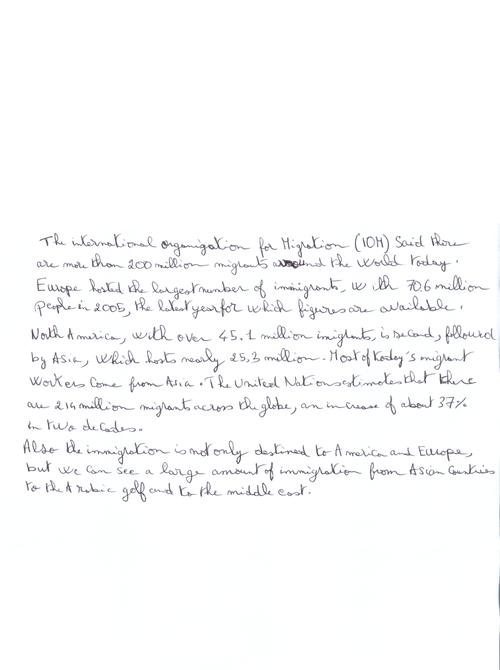 The international organization for Migration (IOM) Said there
are more than 200 million migrants around the world today.
Europe hosted the largest number of immigrants, with 70.6 million
people in 2005, the latest year for which figures are available.
North America, with over 45.1 million imigrants, is second, followed
by Asia, which hosts nearly 25,3 million. Most of today's migrant
workers come from Asia. The United Nations estimates that there
are 214 million migrants across the globe, an increase of about 37%
in two decades.
Also the immigration is not only destined to America and Europe,
but we can see a large amount of immigration from Asian Countries
to the Arabic golf and to the middle east.